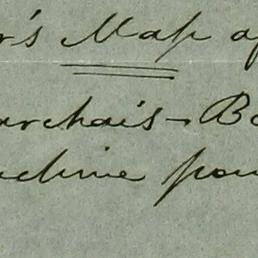 r's Map of
archais-Bo
chine pour